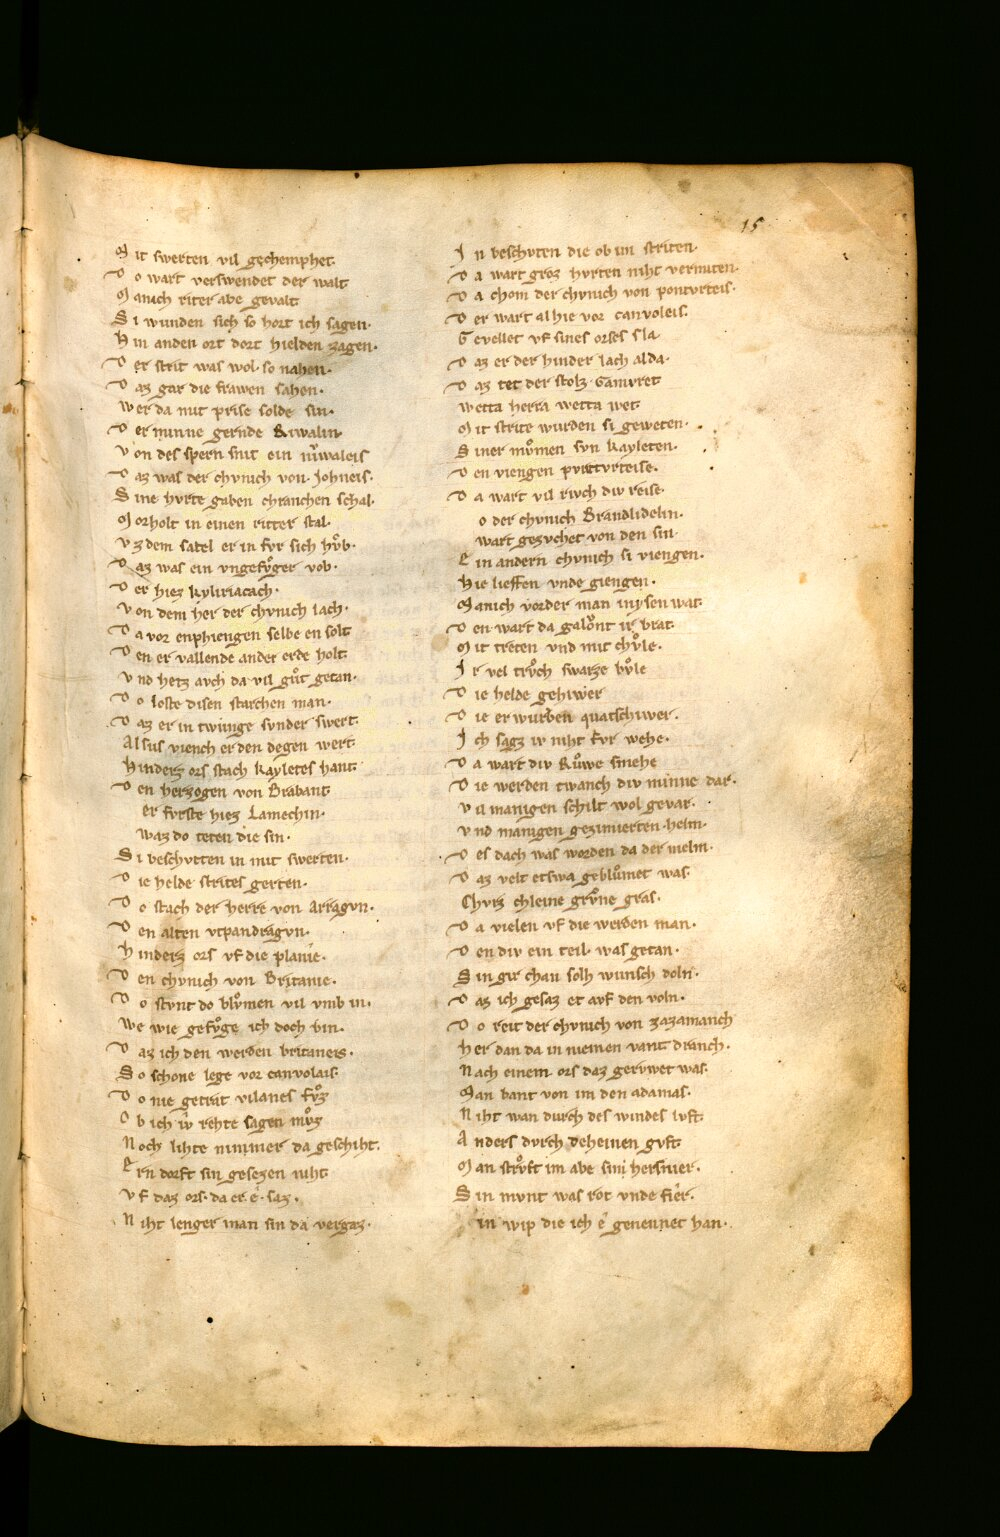 15
Mit swerten vil gechemphet.
Do wart verswendet der walt
Manich riter abe gevalt
Si wunden sich so hort ich sagen.
Hin anden ort dort hielden zagen.
Der strit was wol so nahen.
Daz gar die frawen sahen.
Wer da mit prise solde sin.
Der minne gernde Riwalin
Von des spern snit ein nv̓waleis
Daz was der chvnich von Johneis.
Sine hvrte gaben chranchen schal.
Morholt in einen ritter stal.
Vz dem satel er in fvr sich hvͦb.
Daz was ein vngefvͤger vob.
Der hiez kyliriacach.
Von dem her der chvnich lach.
Da vor enphiengen selbe en solt
Den er vallende ander erde holt
Vnd hetz avch da vil gvͦt getan.
Do loste disen starchen man.
Daz er in twunge svnder swert
Alsus viench er den degen wert
Hinderz ors stach kayletes hant
Den herzogen von Brabant
er fvrste hiez Lamechin.
Waz do teten die sin.
Si beschvtten in mit swerten.
Die helde strites gerten.
Do stach der herre von Arragvn.
Den alten vtpandragvn.
Hinderz ors vf die planie.
Den chvnich von Britanie.
Do stvnt do blvͦmen vil vmb in.
We wie gefvͤge ich doch bin.
Daz ich den werden britaneis.
So schone lege vor canvolais.
Do nie getrat vilanes fvͦz
Ob ich iv̓ rehte sagen mvͦz
Noch lihte nimmer da geschiht.
Ern dorft sin gesezen niht
Vf daz ors. da er e. saz.
Niht lenger man sin da vergaz.
In beschvten die ob im striten.
Da wart groz hvrten niht vermiten.
Da chom der chvnich von pontvrteis.
Der wart alhie vor canvoleis.
Gevellet vf sines orses sla
Daz er der hinder lach alda.
Daz tet der stolz. Gamvret
Wetta herra wetta wet.
Mit strite wurden si geweten.
Siner mvͦmen svn kayleten.
Den viengen pvntvrteise.
Da wart vil rivch div reise.
o der chvnich Brandlidelin.
wart gezvchet von den sin.
Ein andern chvnich si viengen.
Hie lieffen vnde giengen.
Manich vorder man in ysen wat.
Den wart da galvͦnt ir brat.
Mit treten vnd mit chvͦle.
Ir vel trvͦch swarze bvͦle
Die helde gehiwer
Die erwurben quatschiwer.
Ich sagz iv niht fvr wehe.
Da wart div Rvͦwe smehe
Die werden twanch div minne dar.
Vil manigen schilt wol gevar.
Vnd manigen gezimierten helm.
Des dach was worden da der melm.
Daz velt etswa geblvͦmet was.
Chvrz chleine grvͦne gras.
Da vielen vf die werden man.
Den div ein teil was getan.
Sin gir chan solh wunsch doln.
Daz ich gesaz et avf den voln.
Do reit der chvnich von zazamanch
Her dan da in niemen vant dranch.
Nach einem ors daz gerywet was.
Man bant von im den adamas.
Niht wan durch des windes lvft.
Anders dvrch deheinen gvft.
Man strovft im abe sin hersnier.
Sin mvnt was rot vnde fier.
in wip die ich e genennet han.